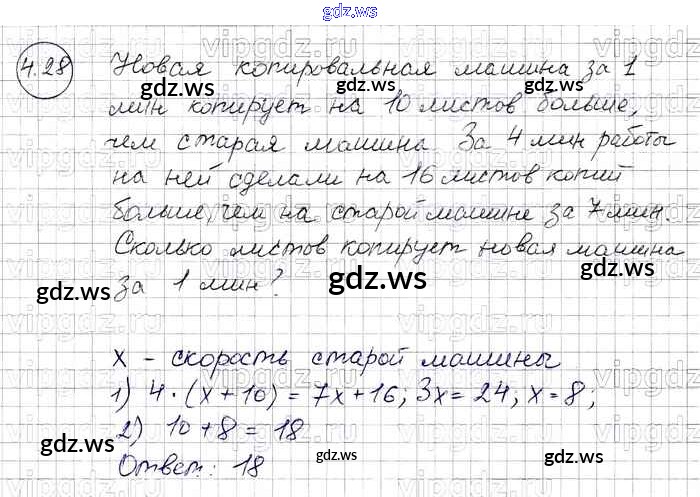 gdz.ws
4.28
Новая копировальная машина за 1
мин копирует на 10 листов больше,
чем старая машина. За 4 мин работы
на ней сделали на 16 листов копий
больше, чем на старой машине за 7 мин.
Сколько листов копирует новая машина
за 1 мин?
gdz.ws gdz.ws gdz.ws
x - скорость старой машины
1) 4·(x+10) = 7x+16; 3x=24, x=8;
2) 10+8=18
Ответ: 18
gdz.ws gdz.ws gdz.ws
vipgdz.ru